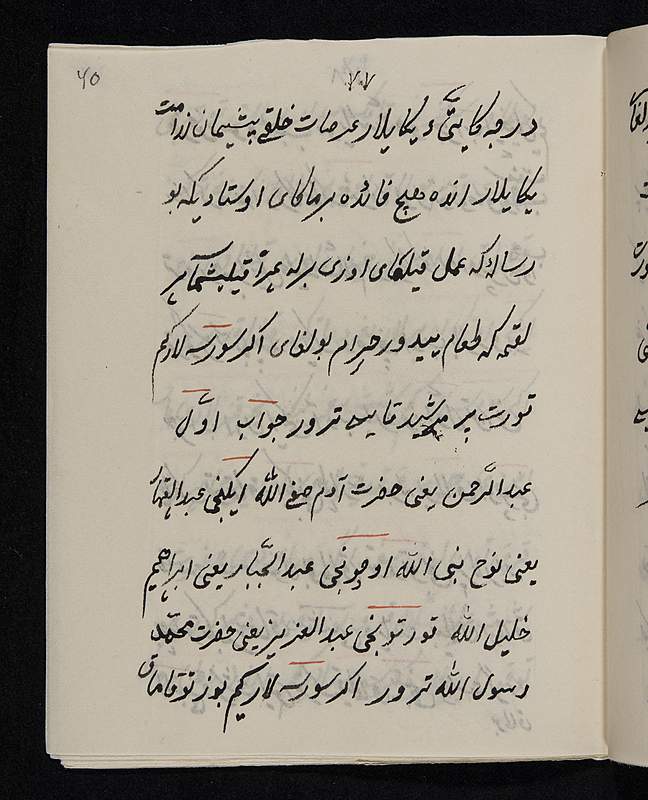 ۷۷
40
در چه کایتیٔ یکایلار عرصات خلقی پیشیمان ندامت
یکایلار انده هیچ فائده برماکای اوستادیکه بو
رساله که عمل قیلکای اوزی برله همراٰ قیلیشماٰ هر
لقمه که طعام ییدور حرام بولغای اکر سورسه لارکیم
تورت پر مرشید قایسی ترور جواب اوّل
عبدالرّحمن یعنی حضرت آدم صفی الله ایکینجی عبدالقهّار
یعنی نوح نبی الله اوچونجی عبدالجبّار یعنی ابراهیم
خلیل الله تورتونجی عبدالعزیز یعنی حضرت محمّد
رسول الله ترور اکر سورسه لارکیم بوز توقاماق